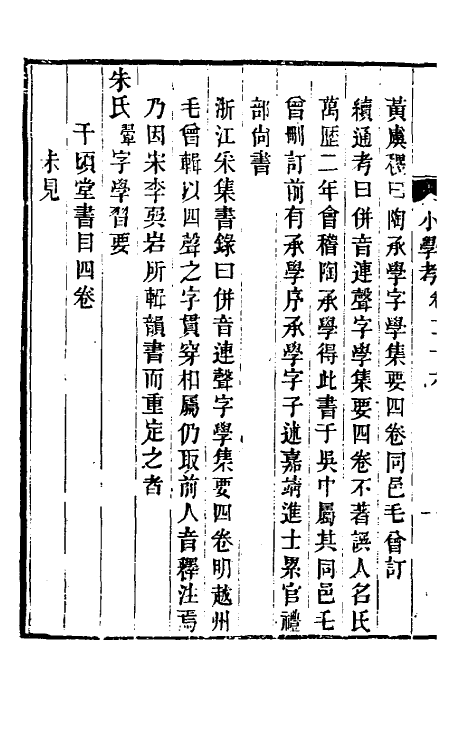 小學考
黃虞稷曰陶承學字學集要四卷同邑毛曾訂
續通考曰併音連聲字學集要四卷不著譔人名氏
萬歷二年會稽陶承學得此書于吳中屬其同邑毛
曾刪訂前有承學序承學字子述嘉靖進士累官禮
部尙書
浙江采集書錄曰併音連聲字學集要四卷明越州
毛曾輯以四聲之字貫穿相屬仍取前人音釋注焉
乃因宋李巽岩所輯韻書而重定之者
朱氏翬字學習要
千頃堂書目四卷
未見